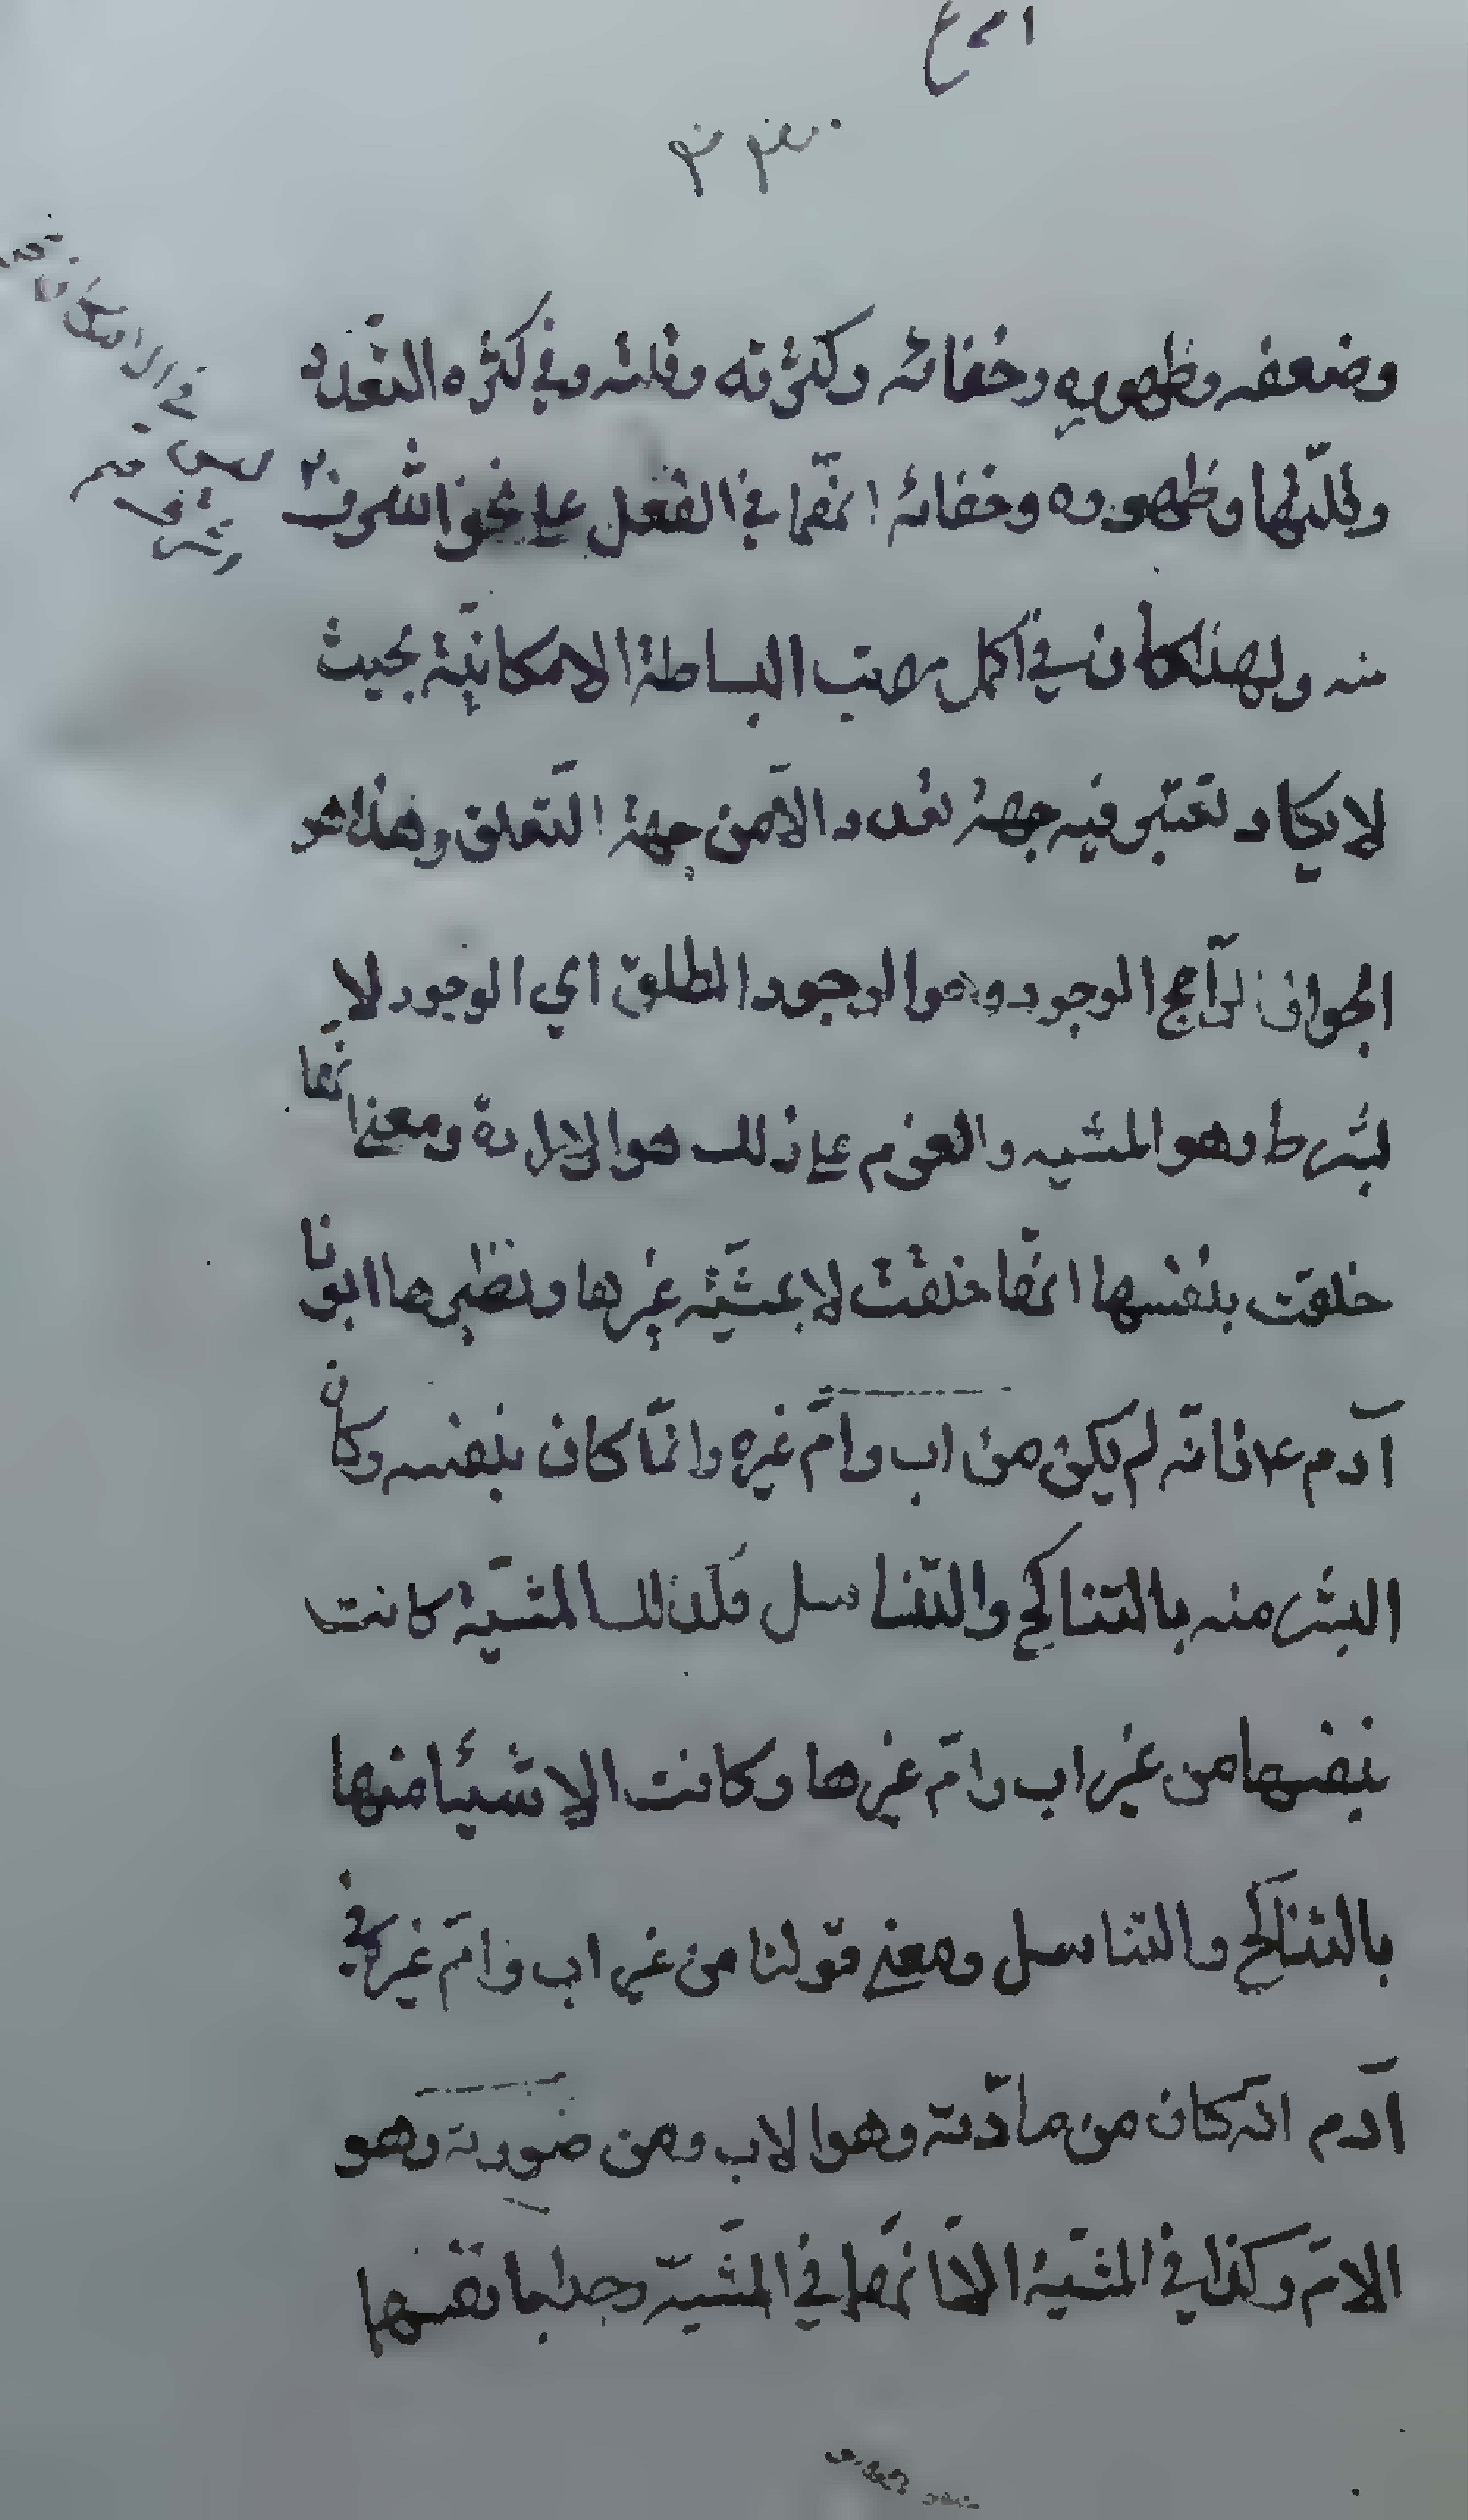 وضعفه وظهوره وخفائه وكثرته وقلته وفي كثرة التعدد
وقلتها وظهوره وخفائه انها في الفعل على نحو اشرف
منه ولهذا كان في اكمل مراتب البساطة الامكانية بحيث
لا يكاد تعتبر فيه جهة تعدد الا من جهة التعلق وهذا هو
الجواز الراجح الوجود وهو الوجود المطلق اي الوجود لا
بشرط وهو المشيه والعزم على ذلك هو الارادة ومعنى انها
خلقت بنفسها انها خلقت لا بمشيّة غيرها ونظيرها ابونا
آدم ع فانه لم يكن من اب وامّ غيره وانّما كان بنفسه وكان
البشر منه بالتناكح والتناسل فكذلك المشيّة كانت
بنفسها من غير اب وامّ غيرها وكانت الاشيئا منها
بالتناكح والتناسل ومعنى قولنا من غير اب وامّ غيره في
آدم انه كان من مادّته وهو الاب ومن صورته وهو
الامّ وكذا في المشيّة الا انّها في المشيّة